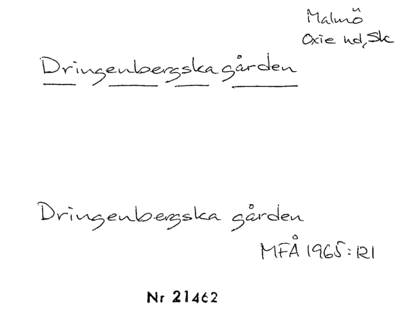 Malmö
Oxie hd, Sk
Dringenbergska gården
Dringenbergska gården
MFÅ 1965:121
Nr 21462